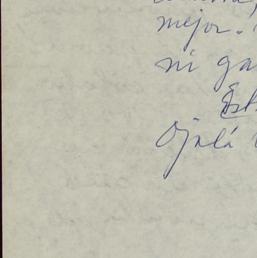 mejor.
ni ga
Est
Ojalá